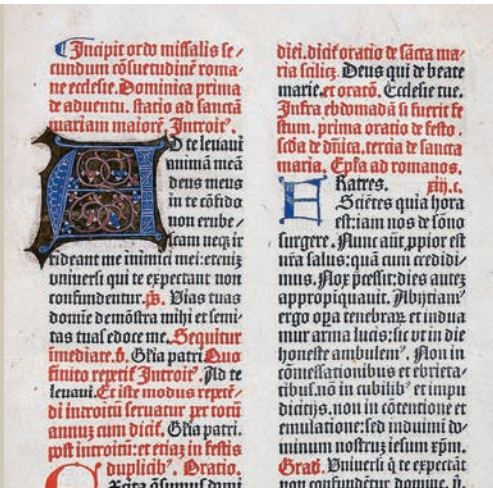 Incipit ordo missalis se⸗
cundum cōsuetudinē roma⸗
ne ecclesie. Dominica prima
de aduentu. statio ad sanctā
mariam maiorē. Introitꝰ.
AD te leuaui
animā meā
deus meus
in te cōfido
non erube⸗
scam neqꝫ ir
rideant me inimici mei: etenī
vniuersi qui te expectant non
confundentur. ℣. Vias tuas
domine demōstra mihi et semi⸗
tas tuas edoce me. Sequitur
īmediate. Gl'ia patri. Quo
finito repetit̄ Introitꝰ. Ad te
leuaui. Et iste modus repetē⸗
di introitū seruatur per totū
annuꝫ cum dicit̄. Gl'ia patri.
post introitū: et etiaꝫ in festis
duplicibꝰ. Oratio.
diei. dicit̄ oratio de sācta ma⸗
ria scilicꝫ. Deus qui de beate
marie. et oratō. Ecclesie tue.
Infra ebdomadā si fuerit fe
stum. prima oratio de festo.
scd'a de dn̄ica, tercia de sancta
maria. Ep̄la ad romanos.
FRatres. xiij. c.
Sciētes quia hora
est: iam nos de sōno
surgere. Nunc aūt ꝓpior est
nr̄a salus: quā cum credidi⸗
mus. Nox p̄cessit: dies auteꝫ
appropiquauit. Abijciamꝰ
ergo oꝑa tenebraꝝ et indua
mur arma lucis: sic vt in die
honeste ambulemꝰ. Non in
cōmessationibus et ebrieta⸗
tibus. nō in cubilibꝰ et impu
dicitijs. non in cōtentione et
emulatione: sed induimī do⸗
minum nostruꝫ iesum xp̄m.
Grad̄. Vniuersi q̇ te expectāt
non confundētur domine. ℣.